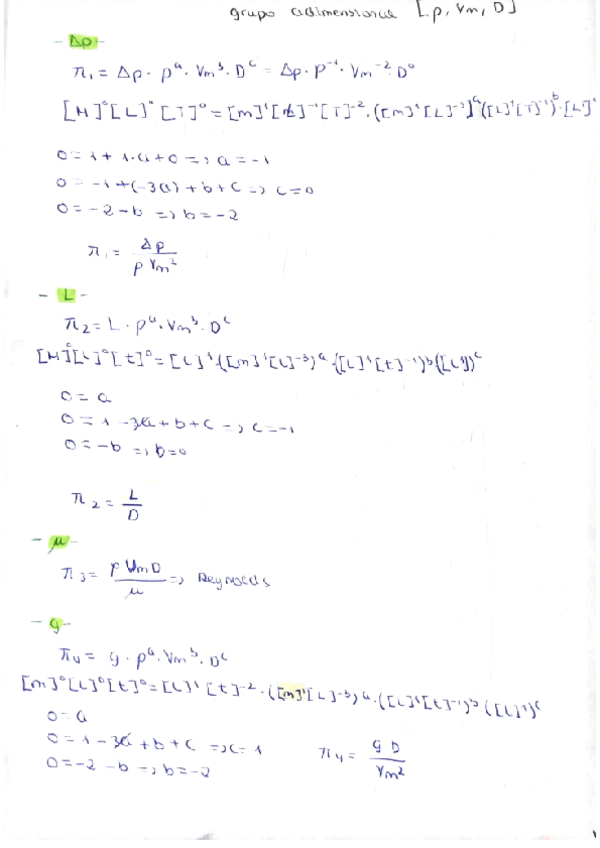 grupo adimensional [ρ, Vm, D]
- Δp -
π₁ = Δp · ρᵃ · Vmᵇ · Dᶜ = Δp · ρ⁻¹ · Vm⁻² · D⁰
[M]⁰[L]⁰[T]⁰ = [m]¹[L]⁻¹[T]⁻² · ([m]¹[L]⁻³)ᵃ ([L]¹[T]⁻¹)ᵇ · [L]
0 = 1 + 1·a + 0 => a = -1
0 = -1 + (-3a) + b + c => c = 0
0 = -2 - b => b = -2
π₁ = Δp / ρ Vm²
- L -
π₂ = L · ρᵃ · Vmᵇ · Dᶜ
[M]⁰[L]⁰[t]⁰ = [L]¹ · ([m]¹[L]⁻³)ᵃ · ([L]¹[t]⁻¹)ᵇ ([L]¹)ᶜ
0 = a
0 = 1 - 3a + b + c => c = -1
0 = -b => b = 0
π₂ = L / D
- μ -
π₃ = ρ Vm D / μ => Reynolds
- g -
π₄ = g · ρᵃ · Vmᵇ · Dᶜ
[m]⁰[L]⁰[t]⁰ = [L]¹[t]⁻² · ([m]¹[L]⁻³)ᵃ · ([L]¹[t]⁻¹)ᵇ ([L]¹)ᶜ
0 = a
0 = 1 - 3a + b + c => c = 1
0 = -2 - b => b = -2
π₄ = g D / Vm²